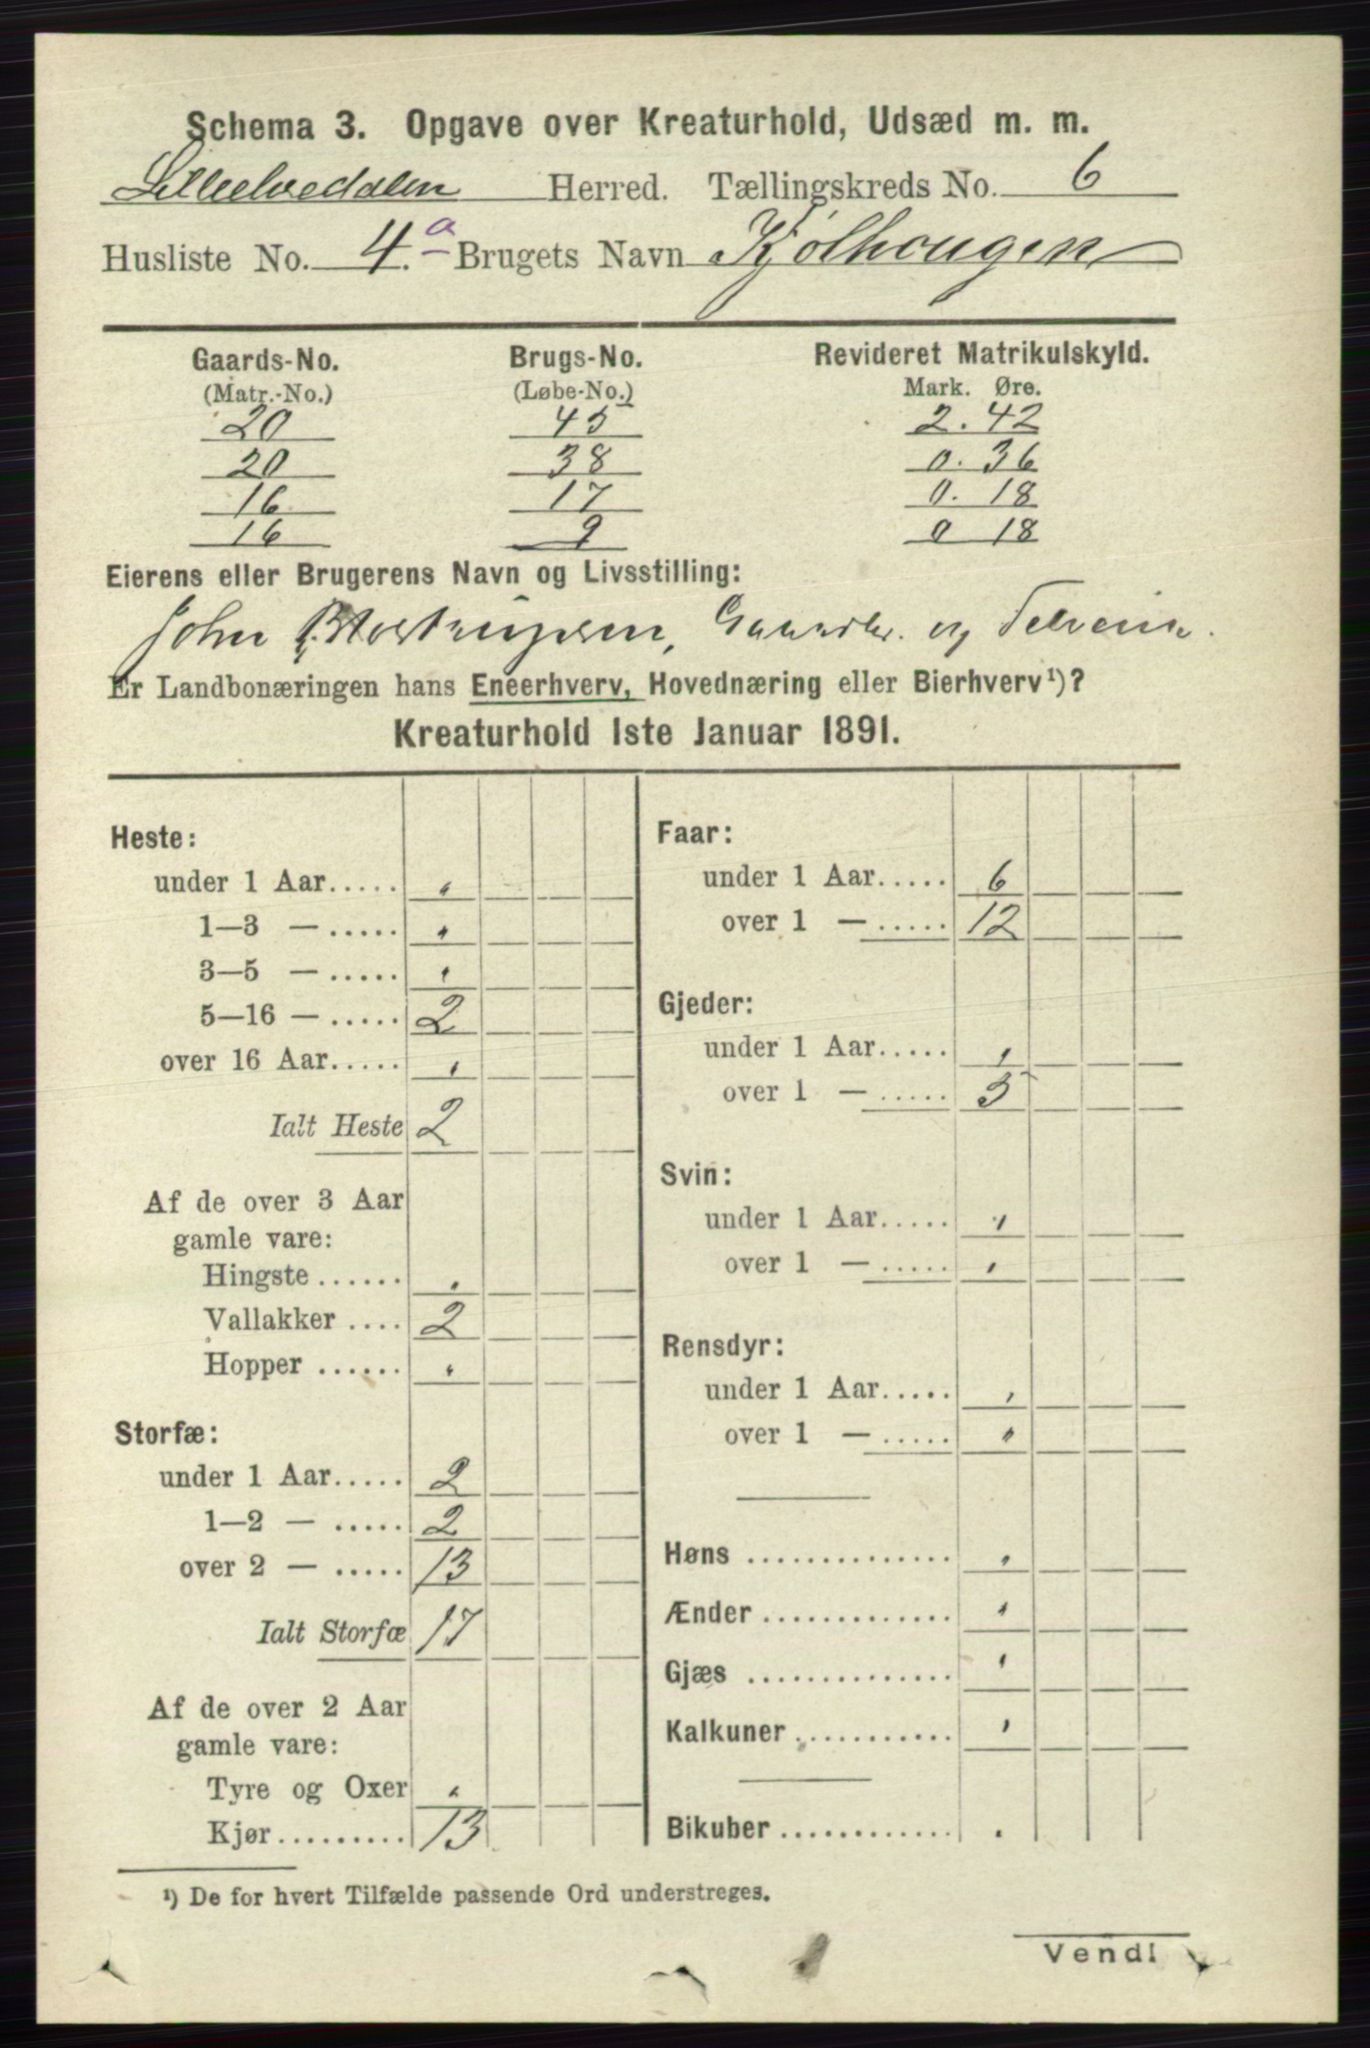 Schema 3. Opgave over Kreaturhold, Udsæd m. m.
Lilleelvedalen Herred. Tællingskreds No. 6
Husliste No. 4.a Brugets Navn Kjølhougen
Gaards-No. Brugs-No. Revideret Matrikulskyld.
(Matr.-No.) (Løbe-No.) Mark. Øre.
20 45 2. 42
20 38 0. 36
16 17 0. 18
16 9 0 18
Eierens eller Brugerens Navn og Livsstilling:
John Gaardbr. og
Er Landbonæringen hans Eneerhverv, Hovednæring eller Bierhverv¹)?
Kreaturhold 1ste Januar 1891.
Heste:
under 1 Aar.....
1—3 — .....
3—5 — .....
5—16 — ..... 2
over 16 Aar.....
Ialt Heste 2
Af de over 3 Aar
gamle vare:
Hingste ......
Vallakker .... 2
Hopper ......
Storfæ:
under 1 Aar..... 2
1—2 — ..... 2
over 2 — ..... 13
Ialt Storfæ 17
Af de over 2 Aar
gamle vare:
Tyre og Oxer
Kjør.......... 13
Faar:
under 1 Aar..... 6
over 1 — ..... 12
Gjeder:
under 1 Aar.....
over 1 — ..... 5
Svin:
under 1 Aar.....
over 1 — .....
Rensdyr:
under 1 Aar.....
over 1 — .....
Høns ..............
Ænder .............
Gjæs ..............
Kalkuner ...........
Bikuber .............
¹) De for hvert Tilfælde passende Ord understreges.
Vend!